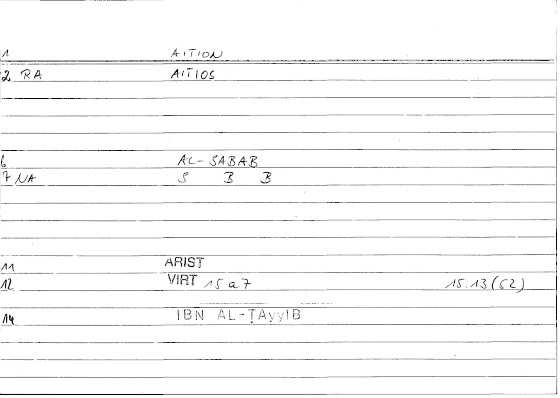 1 AITION
2 RA AITIOS
6 AL-SABAB
7 NA S B B
11 ARIST
12 VIRT 15 a 7 15.13 (52)
14 IBN AL-ṬAyyIB